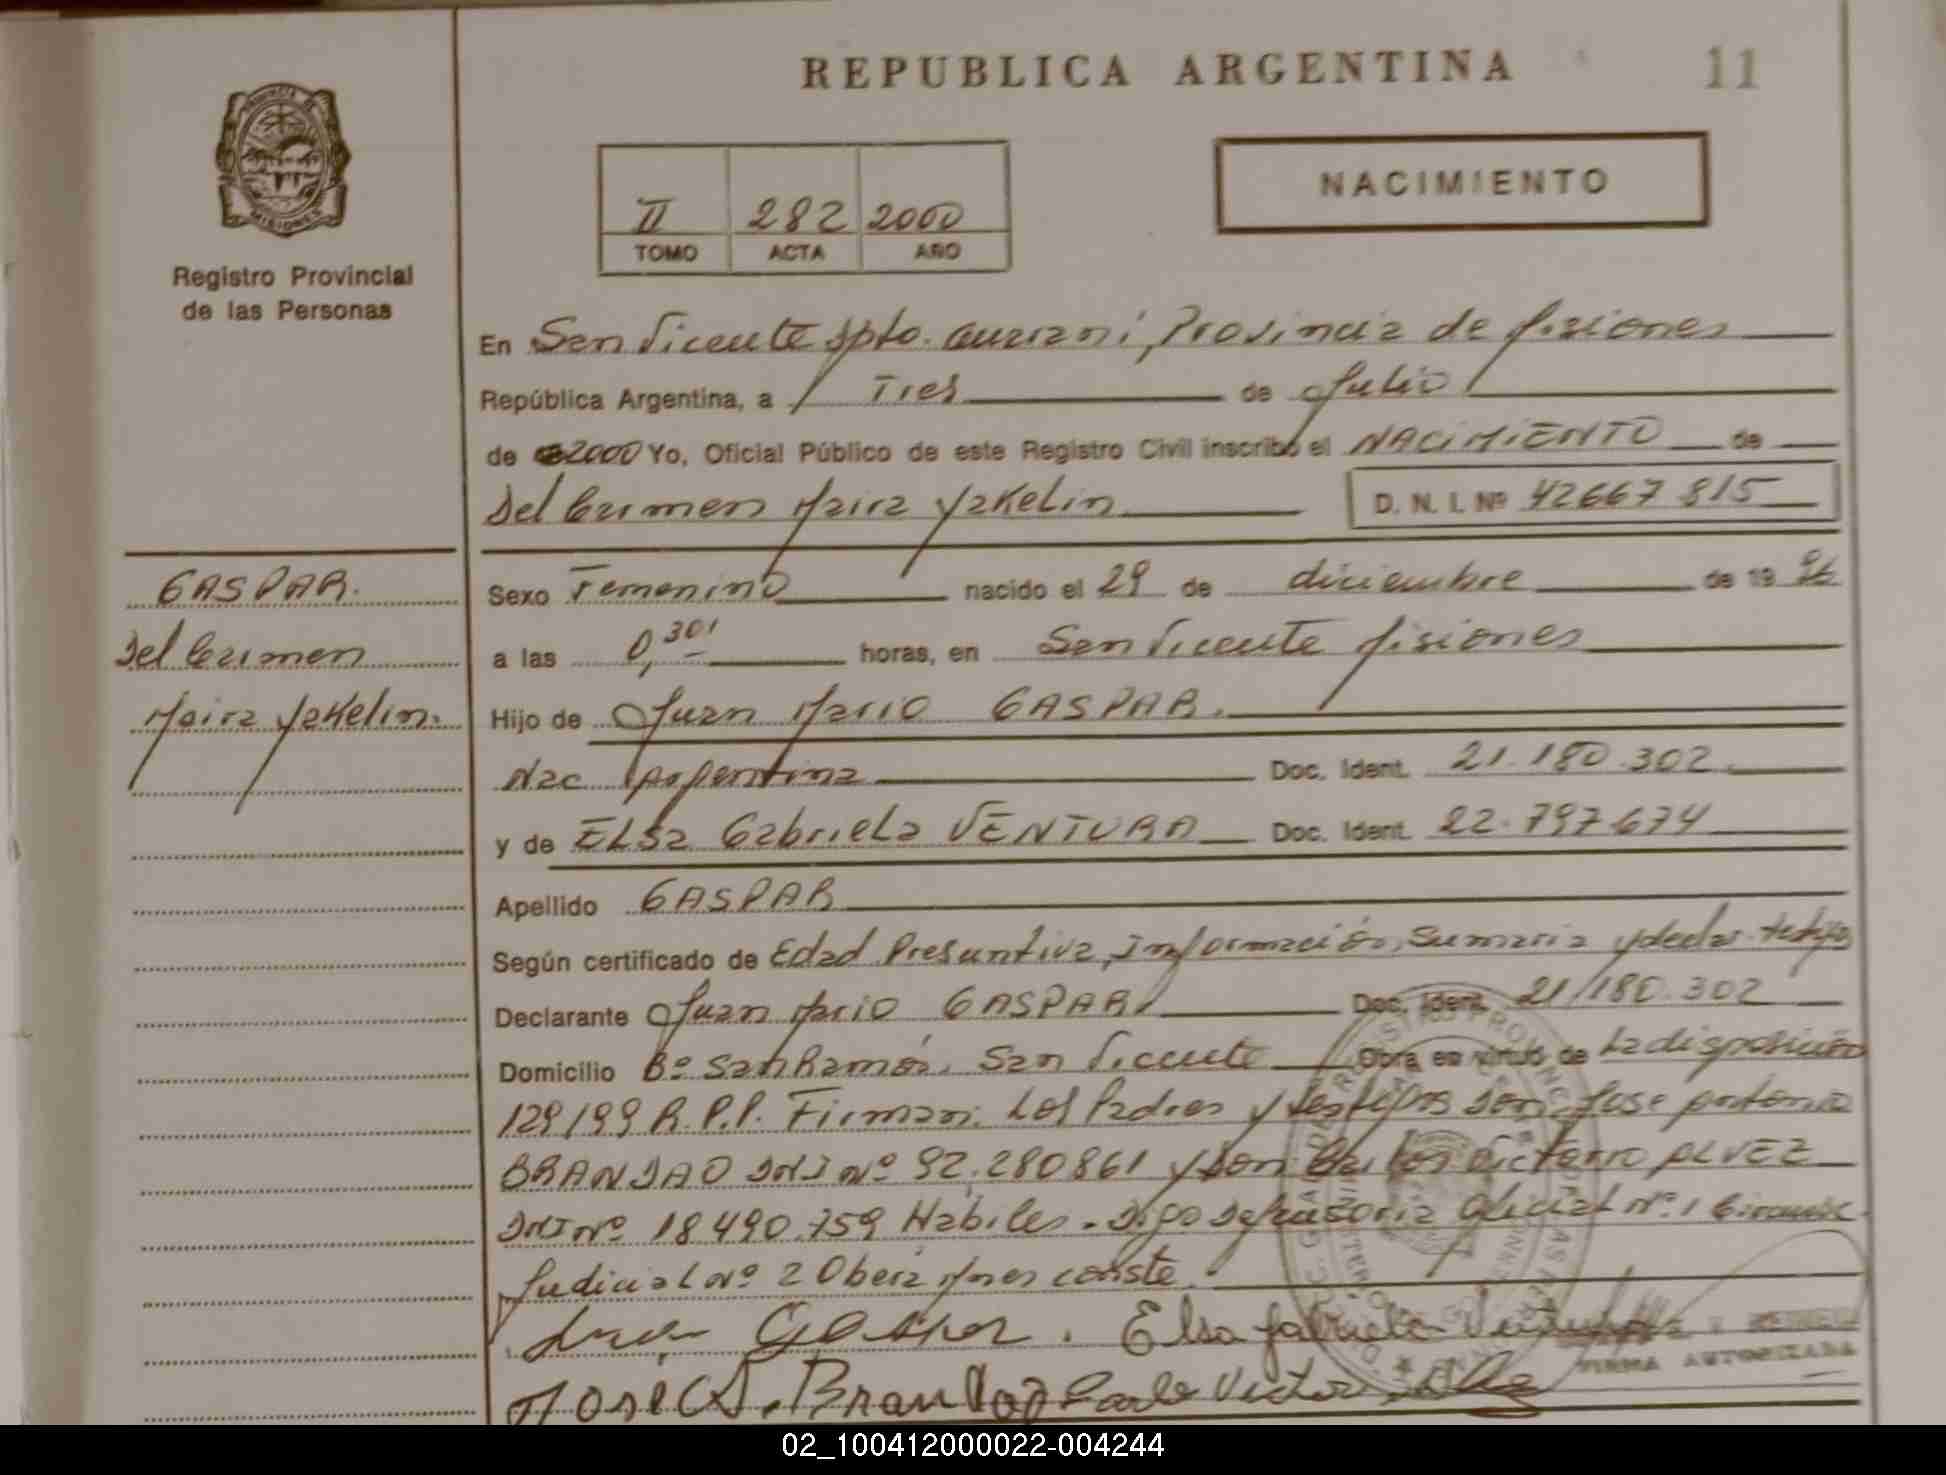 REPUBLICA ARGENTINA
11
PROVINCIA DE
MISIONES
Registro Provincial
de las Personas
II 282 2000
TOMO ACTA AÑO
NACIMIENTO
En San Vicente Dpto. Guaraní, Provincia de Misiones
República Argentina, a Tres de Julio
de 2000 Yo, Oficial Público de este Registro Civil inscribo el NACIMIENTO de
Del Carmen Maira Yakelin
D. N. I. Nº 42667 815
GASPAR.
Del Carmen
Maira Yakelin.
Sexo Femenino nacido el 29 de diciembre de 19 96
a las 0,30' horas, en San Vicente Misiones
Hijo de Juan Mario GASPAR.
Nac Argentina Doc. Ident. 21.180.302
y de ELSa Gabriela VENTURA Doc. Ident. 22.797.674
Apellido GASPAR
Según certificado de Edad Presuntiva, Información Sumaria y declar. testigos
Declarante Juan Mario GASPAR Doc. Ident. 21.180.302
Domicilio Bº San Ramón. San Vicente Obra en virtud de La disposición
129/99 R.P.P. Firman. Los Padres y testigos don Jose Antonio
BRANDAO DNI Nº 92.280861 y don Carlos Victorio ALVEZ
DNI Nº 18490.759 Habiles. Digo Defensoria Oficial Nº 1 Circunsc.
Judicial Nº 2 Obera Mnes conste.
Juan Gaspar. Elsa Gabriela Ventura
Jose A. Brandao Carlos Victor
FIRMA AUTORIZADA
02_100412000022-004244